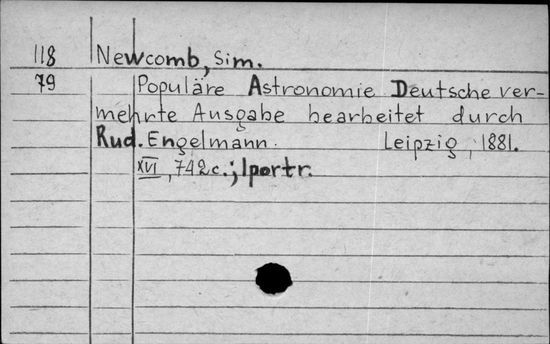 118 Newcomb, Sim.
79 Populäre Astronomie Deutsche ver-
mehrte Ausgabe bearbeitet durch
Rud. Engelmann. Leipzig, 1881.
XVI, 742c.; 1portr.